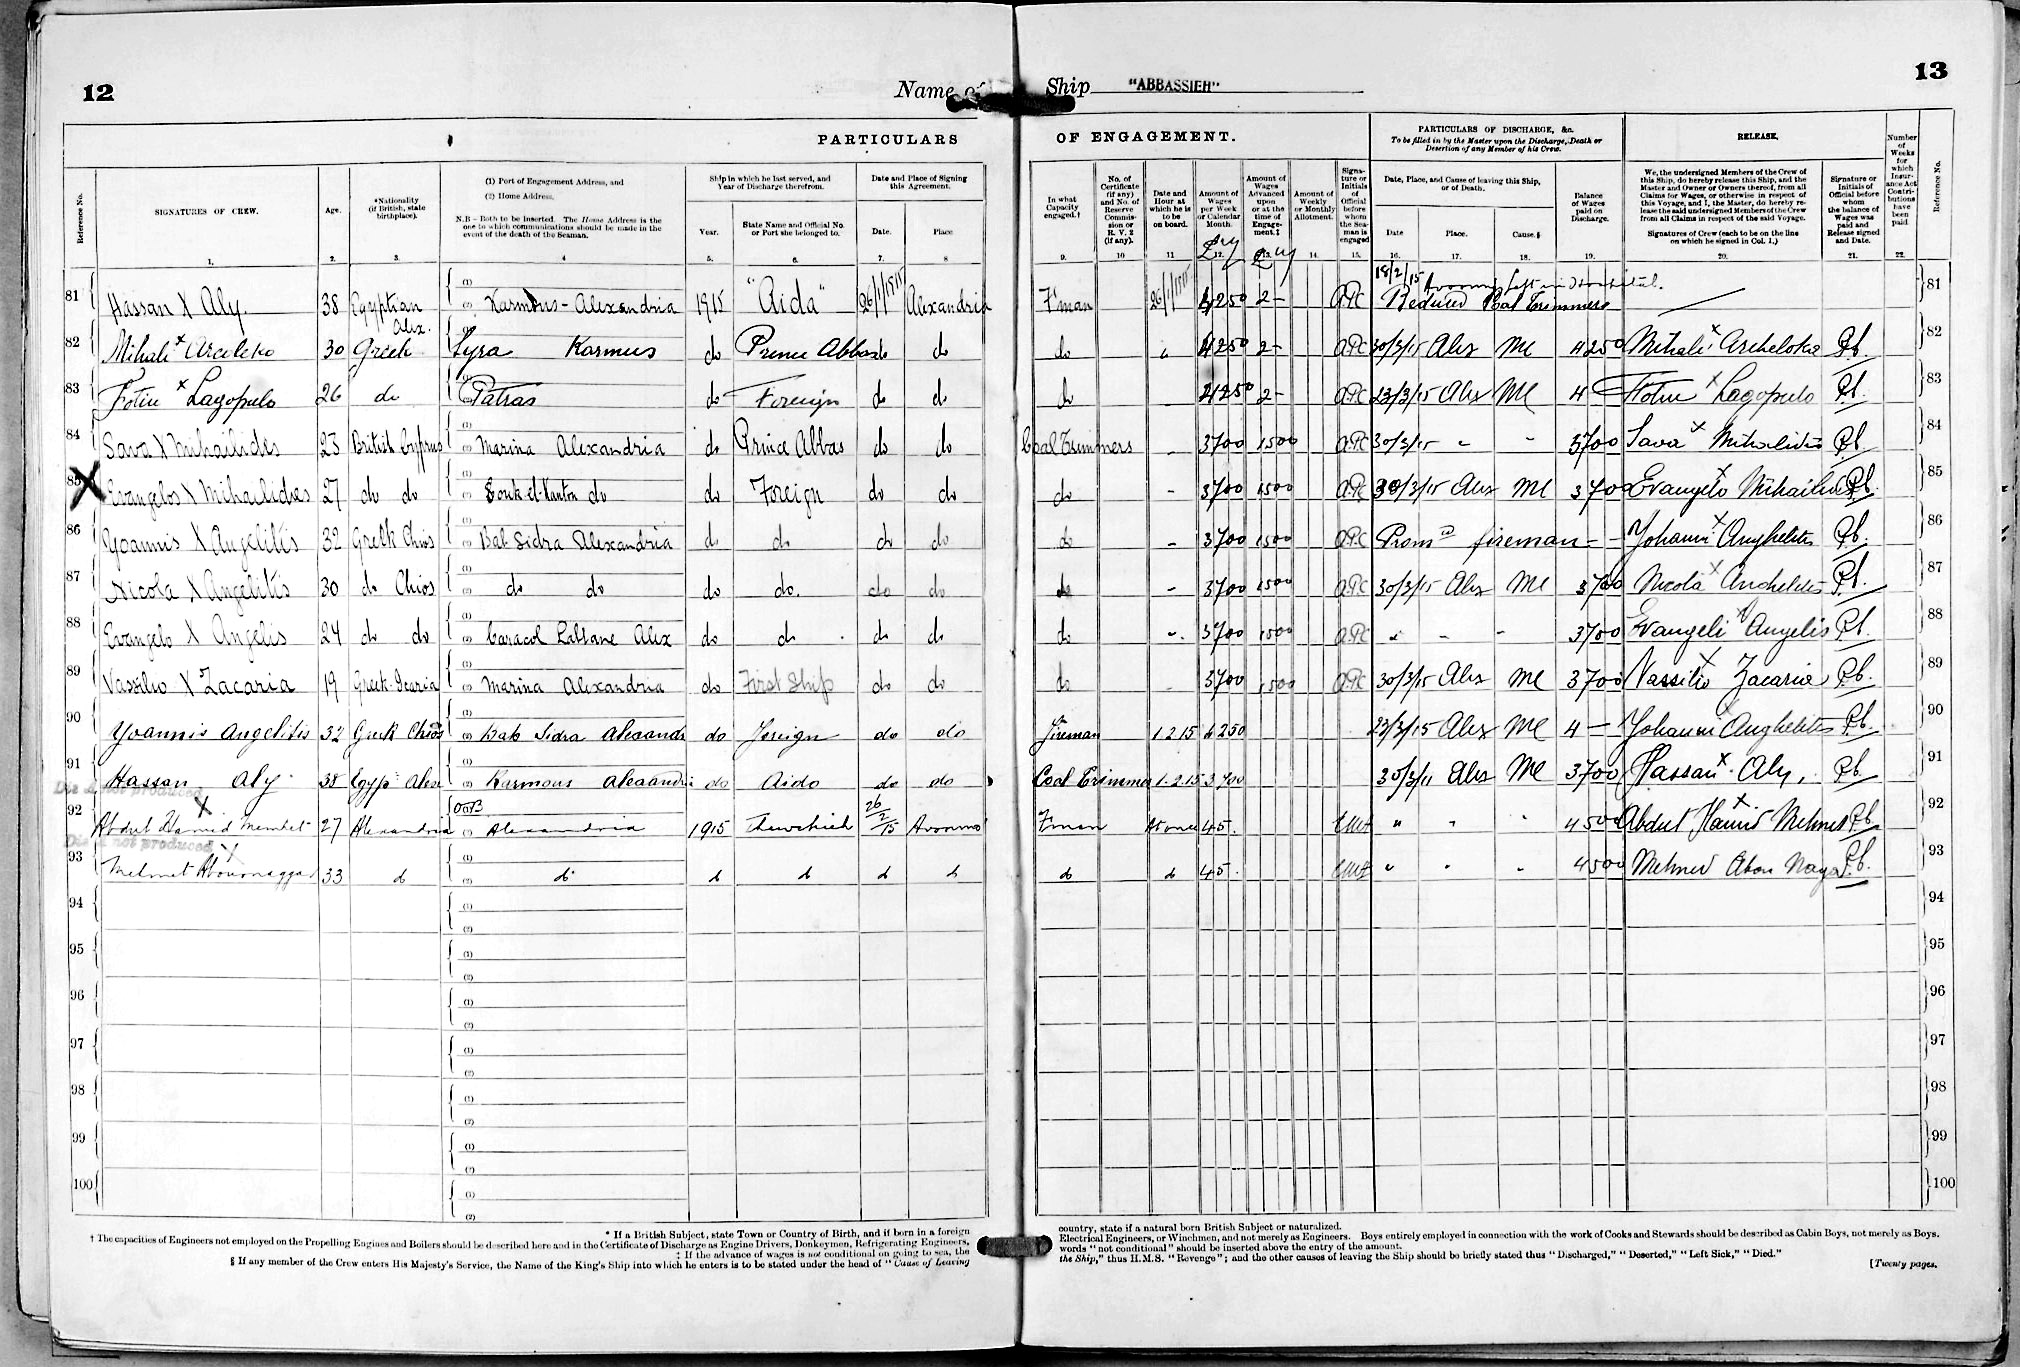 12
Name of Ship "ABBASSIEH"
13
PARTICULARS OF ENGAGEMENT.
PARTICULARS OF DISCHARGE, &c.
To be filled in by the Master upon the Discharge, Death or Desertion of any Member of his Crew.
RELEASE.
Reference No.
SIGNATURES OF CREW.
Age.
*Nationality (if British, state birthplace).
(1) Port of Engagement Address, and
(2) Home Address.
N.B – Both to be inserted. The Home Address is the one to which communications should be made in the event of the death of the Seaman.
Ship in which he last served, and Year of Discharge therefrom.
Year.
State Name and Official No. or Port she belonged to.
Date and Place of Signing this Agreement.
Date.
Place
In what Capacity engaged.†
No. of Certificate (if any) and No. of Reserve Commission or R. V. 2 (if any).
Date and Hour at which he is to be on board.
Amount of Wages per Week or Calendar Month.
Amount of Wages Advanced upon or at the time of Engagement.‡
Amount of Weekly or Monthly Allotment.
Signature or Initials of Official before whom the Seaman is engaged
Date, Place, and Cause of leaving this Ship, or of Death.
Date
Place.
Cause.§
Balance of Wages paid on Discharge.
We, the undersigned Members of the Crew of this Ship, do hereby release this Ship, and the Master and Owner or Owners thereof, from all Claims for Wages, or otherwise in respect of this Voyage, and I, the Master, do hereby release the said undersigned Members of the Crew from all Claims in respect of the said Voyage.
Signatures of Crew (each to be on the line on which he signed in Col. 1.)
Signature or Initials of Official before whom the balance of Wages was paid and Release signed and Date.
Number of Weeks for which Insurance Act Contributions have been paid
Reference No.
1. 2. 3. 4 5. 6. 7. 8 9. 10 11 12. 13. 14. 15. 16. 17. 18. 19. 20. 21. 22.
81 Hassan X Aly. 38 Egyptian Alex. Karmous - Alexandria 1915 "Aida" 26/1/1915 Alexandria F'man 26/1/1915 4250 2- APC 18/2/15 Left in Hospital. Reduced Coal Trimmers 81
82 Mihali X Arceleko 30 Greek Syra Karmus do Prince Abbas do do do " 4250 2- APC 30/3/15 Alex Me 4250 Mihali X Archeloka P.b. 82
83 Fotiu X Lagopulo 26 do Patras do Foreign do do do 4250 2- APC 23/3/15 Alex Me 4 Fotiu X Lagopulo P.b. 83
84 Sava X Mihailidis 23 British Cyprus Marina Alexandria do Prince Abbas do do Coal Trimmers 3700 1500 APC 30/3/15 " " 3700 Sava X Mihailidis P.b. 84
85 X Evangelos X Mihailidres 27 do do do do Foreign do do do - 3700 1500 APC 30/3/15 Alex Me 3700 Evangelo X P.b. 85
86 Yoannis X Angelitis 32 Greek Chios Bab Sidra Alexandria do do do do do - 3700 1500 APC Promd fireman - - Yohanni X Anghelitis P.b. 86
87 Nicola X Angelitis 30 do Chios do do do do. do do do - 3700 1500 APC 30/3/15 Alex Me 3700 Nicola X P.b. 87
88 Evangelo X Angelis 24 do do Caracol Labbane Alex do do do do do " 3700 1500 APC " - - 3700 Evangeli X Angelis P.b. 88
89 Vassilio X Zacaria 19 Greek Icaria Marina Alexandria do First Ship do do do 3700 1500 APC 30/3/15 Alex Me 3700 Vassilio X Zacaria P.b. 89
90 Yoannis Angelitis 32 Greek Chios Bab Sidra do Foreign do do Fireman 1 2 15 4250 23/3/15 Alex Me 4 - Yohanni X Anghelitis P.b. 90
91 Hassan Aly 38 Karmous Alexandria do Aido do do Coal Trimmer 1.2.15 3700 Alex Me 3700 Hassan X Aly, P.b. 91
Dis A not produced
92 Abdul Hamid Memhet X 27 Alexandria Alexandria 1915 26/2/15 F'man At once 45. " " " 4500 Abdul X Hamid Mehmet P.b. 92
Dis A not produced
93 Mehmet X 33 do do do do do do do do 45. " " " 4500 Mehmed Abou P.b. 93
94 94
95 95
96 96
97 97
98 98
99 99
100 100
* If a British Subject, state Town or Country of Birth, and if born in a foreign country, state if a natural born British Subject or naturalized.
† The capacities of Engineers not employed on the Propelling Engines and Boilers should be described here and in the Certificate of Discharge as Engine Drivers, Donkeymen, Refrigerating Engineers, Electrical Engineers, or Winchmen, and not merely as Engineers. Boys entirely employed in connection with the work of Cooks and Stewards should be described as Cabin Boys, not merely as Boys.
‡ If the advance of wages is not conditional on going to sea, the words "not conditional" should be inserted above the entry of the amount.
§ If any member of the Crew enters His Majesty's Service, the Name of the King's Ship into which he enters is to be stated under the head of "Cause of Leaving the Ship," thus H.M.S. "Revenge"; and the other causes of leaving the Ship should be briefly stated thus "Discharged," "Deserted," "Left Sick," "Died."
[Twenty pages.